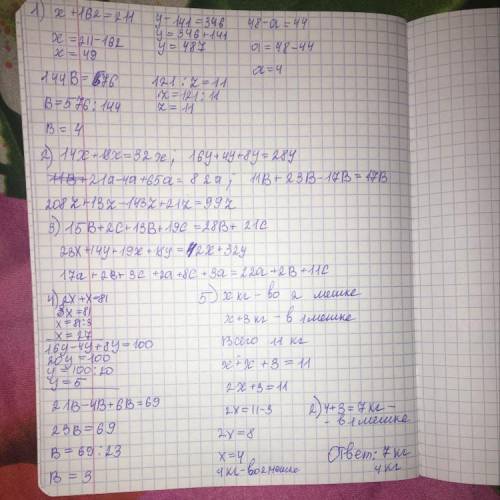 1) x + 162 = 211
x = 211 - 162
x = 49
y - 141 = 346
y = 346 + 141
y = 487
48 - a = 44
a = 48 - 44
a = 4
144B = 576
B = 576 : 144
B = 4
121 : z = 11
z = 121 : 11
z = 11
2) 14x + 18x = 32x; 16y + 4y + 8y = 28y
21a - 4a + 65a = 82a; 11B + 23B - 17B = 17B
208z + 13z - 143z + 21z = 99z
3) 15B + 2C + 13B + 19C = 28B + 21C
23x + 14y + 19x + 18y = 42x + 32y
17a + 2B + 3C + 2a + 8C + 3a = 22a + 2B + 11C
4) 2x + x = 81
3x = 81
x = 81 : 3
x = 27
16y - 4y + 8y = 100
20y = 100
y = 100 : 20
y = 5
21B - 4B + 6B = 69
23B = 69
B = 69 : 23
B = 3
5) x кг - во 2 мешке
x + 3 кг - в 1 мешке
Всего 11 кг
x + x + 3 = 11
2x + 3 = 11
2x = 11 - 3
2x = 8
x = 4
4 кг - во 2 мешке
2) 4 + 3 = 7 кг -
- в 1 мешке
Ответ: 7 кг
4 кг